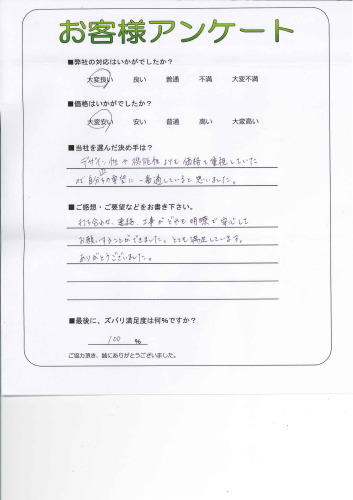 お客様アンケート
■弊社の対応はいかがでしたか？
大変良い 良い 普通 不満 大変不満
■価格はいかがでしたか？
大変安い 安い 普通 高い 大変高い
■当社を選んだ決め手は？
デザイン性や機能性よりも価格を重視していた
が自分の要望に一番適していると思いました。
■ご感想・ご要望などをお書き下さい。
打ち合わせ、連絡、工事がどれも明瞭で安心して
お願いすることができました。とても満足しています。
ありがとうございました。
■最後に、ズバリ満足度は何％ですか？
100 ％
ご協力頂き、誠にありがとうございました。